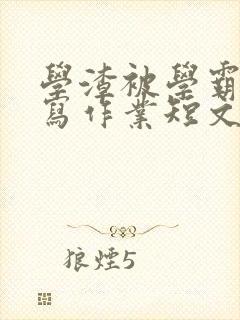 學渣被學霸
寫作業短文
狼煙5